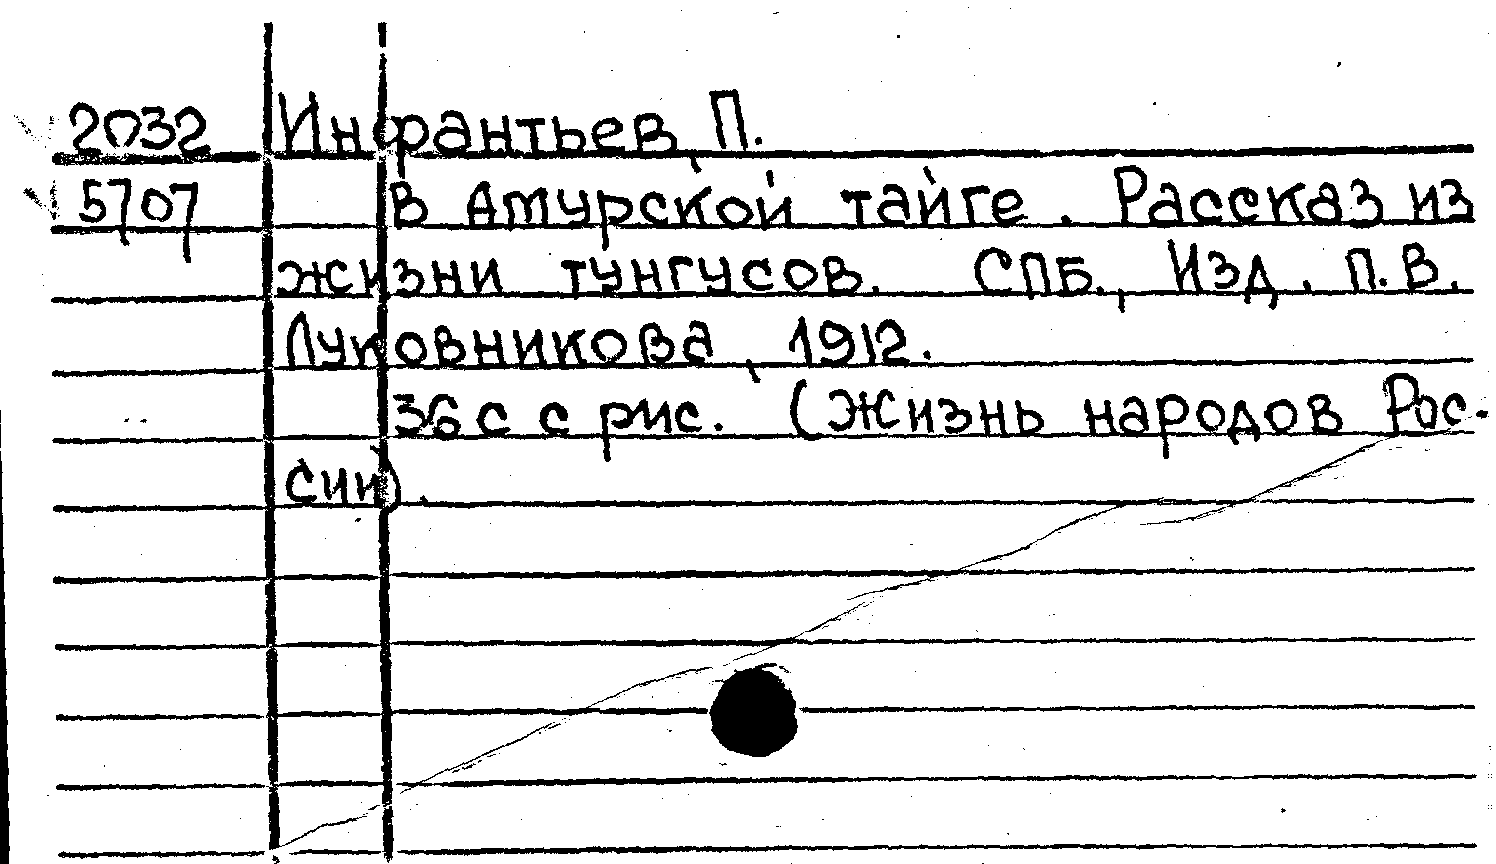 2032 Инфантьев, П.
5707 В Амурской тайге. Рассказ из
жизни тунгусов. СПБ., Изд. П.В.
Луковникова, 1912.
36 с с рис. (Жизнь народов Рос-
сии).